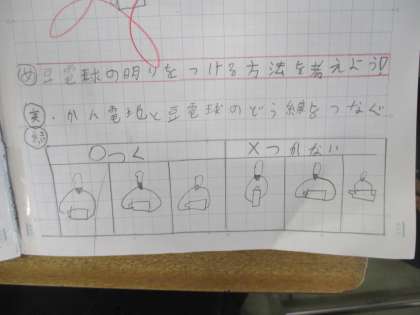 め 豆電球の明りをつける方法を考えよう!
実・かん電地と豆電球のどう線をつなぐ
結
○つく ×つかない